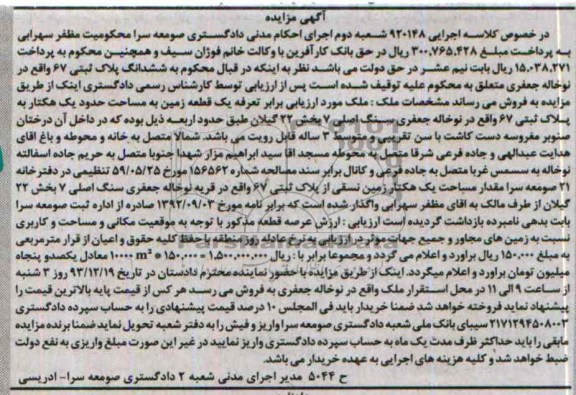 آگهی مزایده
در خصوص کلاسه اجرایی ۹۲۰۱۴۸ شعبه دوم اجرای احکام مدنی دادگستری صومعه سرا محکومیت مظفر سهرابی
به پرداخت مبلغ ۳۰۰٫۷۶۵٫۴۲۸ ریال در حق بانک کارآفرین با وکالت خانم فوژان سیف و همچنین محکوم به پرداخت
۱۵٫۰۳۸٫۲۷۱ ریال بابت نیم عشر در حق دولت می باشد نظر به اینکه در قبال محکوم به ششدانگ پلاک ثبتی ۶۷ واقع در
نوخاله جعفری متعلق به محکوم علیه توقیف شده است پس از ارزیابی توسط کارشناس رسمی دادگستری اینک از طریق
مزایده به فروش می رساند مشخصات ملک : ملک مورد ارزیابی برابر تعرفه یک قطعه زمین به مساحت حدود یک هکتار به
پلاک ثبتی ۶۷ واقع در نوخاله جعفری سنگ اصلی ۷ بخش ۲۲ گیلان طبق حدود اربعه ذیل بوده که در داخل آن درختان
صنوبر مغروسه دست کاشت با سن تقریبی و متوسط ۳ ساله قابل رویت می باشد. شمالا متصل به خانه و محوطه و باغ اقای
هدایت عبدالهی و جاده فرعی شرقا متصل به محوطه مسجد اقا سید ابراهیم مزار شهدا جنوبا متصل به حریم جاده اسفالته
نوخاله به سسمس غربا متصل به جاده فرعی و کانال برابر سند مصالحه شماره ۱۵۶۵۶۲ مورخ ۵۹/۰۵/۲۵ تنظیمی در دفترخانه
۲۱ صومعه سرا مقدار مساحت یک هکتار زمین نسقی از پلاک ثبتی ۶۷ واقع در قریه نوخاله جعفری سنگ اصلی ۷ بخش ۲۲
گیلان از طرف مالک به اقای مظفر سهرابی واگذار شده است که برابر نامه مورخ ۱۳۹۲/۰۹/۰۳ صادره از اداره ثبت صومعه سرا
بابت بدهی نامبرده بازداشت گردیده است ارزیابی : ارزش عرصه قطعه مذکور با توجه به موقعیت مکانی و مساحت و کاربری
نسبت به زمین های مجاور و جمیع جهات موثر در ارزیابی به نرخ عادله روز منطقه با حفظ کلیه حقوق و اعیان از قرار مترمربعی
به مبلغ ۱۵۰٫۰۰۰ ریال براورد و اعلام می گردد و مجموعا برابر با : ریال ۱٫۵۰۰٫۰۰۰٫۰۰۰ = ۱۵۰٫۰۰۰ * ۱۰۰۰۰ m² معادل یکصدو پنجاه
میلیون تومان براورد و اعلام میگردد. اینک از طریق مزایده با حضور نماینده محترم دادستان در تاریخ ۹۳/۱۲/۱۹ روز ۳ شنبه
از ساعت ۹ الی ۱۱ در محل استقرار ملک واقع در نوخاله جعفری به فروش می رسد هر کس از قیمت پایه بالاترین قیمت را
پیشنهاد نماید فروخته خواهد شد ضمنا خریدار باید فی المجلس ۱۰ درصد قیمت پیشنهادی را به حساب سپرده دادگستری
۲۱۷۱۲۹۴۵۰۸۰۰۳ سیبای بانک ملی شعبه دادگستری صومعه سرا واریز و فیش را به دفتر شعبه تحویل نماید ضمنا برنده مزایده
مابقی را باید حداکثر ظرف مدت یک ماه به حساب سپرده دادگستری واریز نمایید در غیر این صورت مبلغ واریزی به نفع دولت
ضبط خواهد شد و کلیه هزینه های اجرایی به عهده خریدار می باشد.
ح ۵۰۴۴ مدیر اجرای مدنی شعبه ۲ دادگستری صومعه سرا- ادریسی